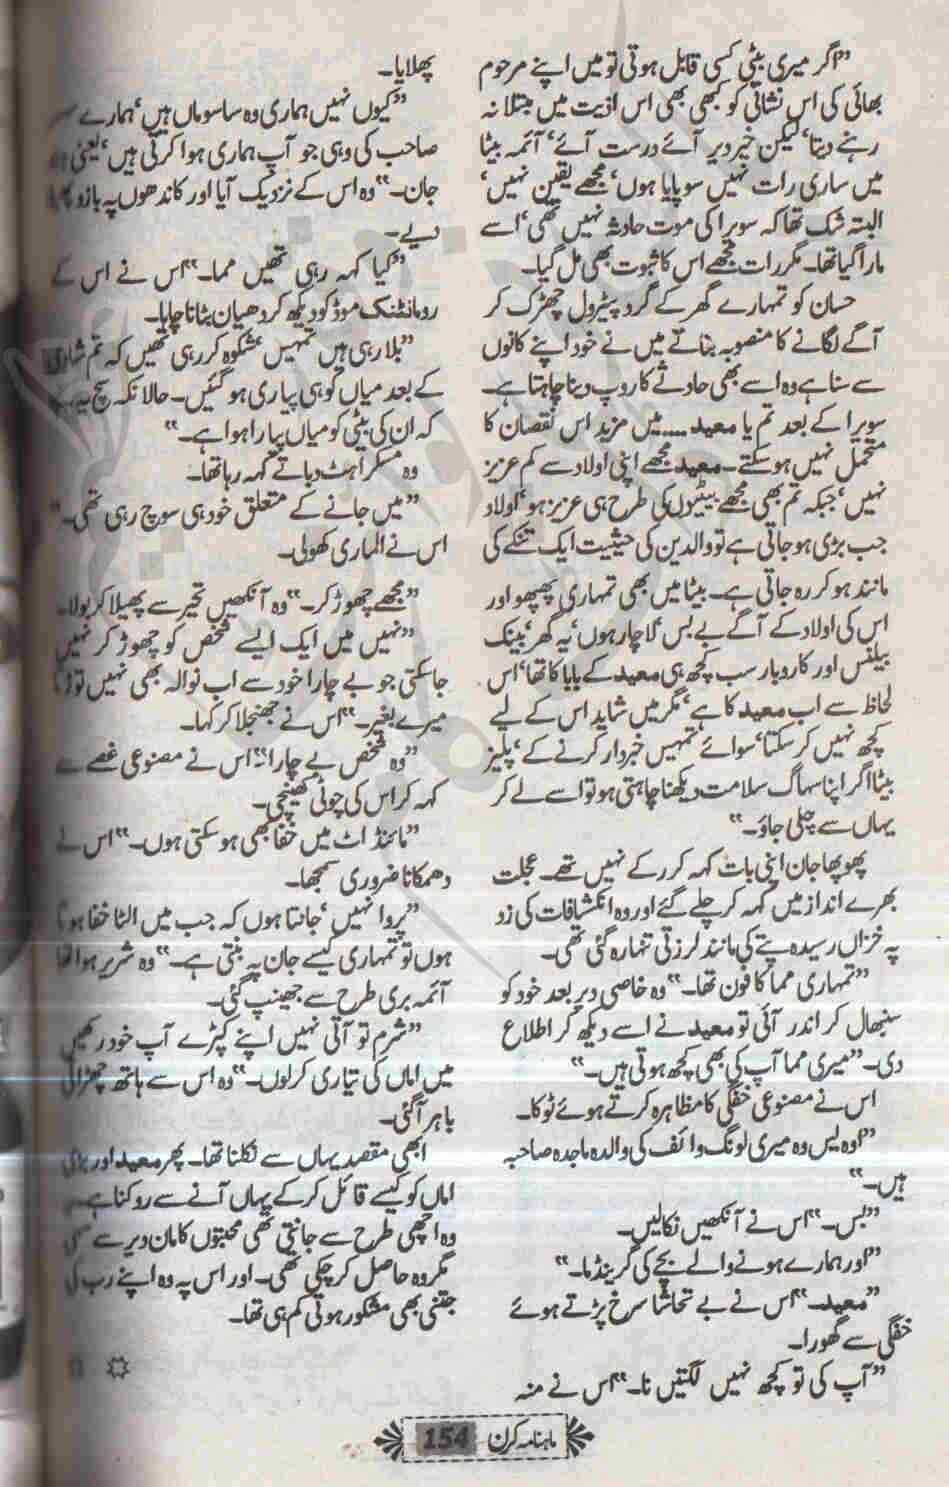 ”اگر میری بیٹی کسی قابل ہوتی تو میں اپنے مرحوم
بھائی کی اس نشانی کو کبھی بھی اس اذیت میں مبتلا نہ
رہنے دیتا‘ لیکن خیر دیر آئے درست آئے‘ آئمہ بیٹا
میں ساری رات نہیں سو پایا ہوں‘ مجھے یقین نہیں‘
البتہ شک تھا کہ سویرا کی موت حادثہ نہیں تھی‘ اسے
مارا گیا تھا۔ مگر رات مجھے اس کا ثبوت بھی مل گیا۔
حسان کو تمہارے گھر کے گرد پیٹرول چھڑک کر
آگے لگانے کا منصوبہ بناتے میں نے خود اپنے کانوں
سے سنا ہے وہ اسے بھی حادثے کا روپ دینا چاہتا ہے۔
سویرا کے بعد تم یا معید.... میں مزید اس نقصان کا
متحمل نہیں ہو سکتے۔ معید مجھے اپنی اولاد سے کم عزیز
نہیں‘ جبکہ تم بھی مجھے بیٹیوں کی طرح ہی عزیز ہو‘ اولاد
جب بڑی ہو جاتی ہے تو والدین کی حیثیت ایک تنکے کی
مانند ہو کر رہ جاتی ہے۔ بیٹا میں بھی تمہاری پھپھو اور
اس کی اولاد کے آگے بے بس‘ لاچار ہوں‘ یہ گھر‘ بینک
بیلنس اور کاروبار سب کچھ ہی معید کے بابا کا تھا‘ اس
لحاظ سے اب معید کا ہے‘ مگر میں شاید اس کے لیے
کچھ نہیں کر سکتا‘ سوائے‘ تمہیں خبردار کرنے کے‘ پلیز
بیٹا اگر اپنا سہاگ سلامت دیکھنا چاہتی ہو تو اسے لے کر
یہاں سے چلی جاؤ۔“
پھوپھا جان اپنی بات کہہ کر رکے نہیں تھے۔ عجلت
بھرے انداز میں کہہ کر چلے گئے اور وہ انکشافات کی زد
پہ خزاں رسیدہ پتے کی مانند لرزتی تنہا رہ گئی تھی۔
”تمہاری مما کا فون تھا۔“ وہ خاصی دیر بعد خود کو
سنبھال کر اندر آئی تو معید نے اسے دیکھ کر اطلاع
دی۔ ”میری مما آپ کی بھی کچھ ہوتی ہیں۔“
اس نے مصنوعی خفگی کا مظاہرہ کرتے ہوئے ٹوکا۔
”اوہ یس وہ میری لونگ وائف کی والدہ ماجدہ صاحبہ
ہیں۔“
”بس۔“ اس نے آنکھیں نکالیں۔
”اور ہمارے ہونے والے بچے کی گرینڈما۔“
”معید۔“ اس نے بے تحاشا سرخ پڑتے ہوئے
خفگی سے گھورا۔
”آپ کی تو کچھ نہیں لگتیں نا۔“ اس نے منہ
پھلایا۔
”کیوں نہیں ہماری وہ ساسو ماں ہیں‘ ہمارے
صاحب کی وہی جو آپ ہماری ہوا کرتی ہیں‘ یعنی
جان۔“ وہ اس کے نزدیک آیا اور کاندھوں پہ بازو
دیے۔
”کیا کہہ رہی تھیں مما۔“ اس نے اس کے
رومانٹک موڈ کو دیکھ کر دھیان بٹانا چاہا۔
”بلا رہی ہیں تمہیں‘ شکوہ کر رہی تھیں کہ تم شادی
کے بعد میاں کو ہی پیاری ہو گئیں۔ حالانکہ سچ یہ ہے
کہ ان کی بیٹی کو میاں پیارا ہوا ہے۔“
وہ مسکراہٹ دباتے کہہ رہا تھا۔
”میں جانے کے متعلق خود ہی سوچ رہی تھی۔“
اس نے الماری کھولی۔
”مجھے چھوڑ کر۔“ وہ آنکھیں تحیر سے پھیلا کر بولا۔
”نہیں میں ایک ایسے شخص کو چھوڑ کر نہیں
جا سکتی جو بے چارا خود سے اب نوالہ بھی نہیں توڑتا
میرے بغیر۔“ اس نے جھنجلا کر کہا۔
”وہ شخص بے چارا“ اس نے مصنوعی غصے سے
کہہ کر اس کی چوٹی کھینچی۔
”مائنڈ اٹ میں خفا بھی ہو سکتی ہوں۔“ اس نے
دھمکانا ضروری سمجھا۔
”پروا نہیں‘ جانتا ہوں کہ جب میں الٹا خفا ہوتا
ہوں تو تمہاری کیسے جان پہ بنتی ہے۔“ وہ شریر ہوا تھا
آئمہ بری طرح سے جھینپ گئی۔
”شرم تو آتی نہیں اپنے کپڑے آپ خود رکھیں
میں اماں کی تیاری کر لوں۔“ وہ اس سے ہاتھ چھڑاتی
باہر آ گئی۔
ابھی مقصد یہاں سے نکلنا تھا۔ پھر معید اور بڑی
اماں کو کیسے قائل کر کے یہاں آنے سے روکنا ہے۔
وہ اچھی طرح سے جانتی تھی محبتوں کا مان دیر سے سہی
مگر وہ حاصل کر چکی تھی۔ اور اس پہ وہ اپنے رب کی
جتنی بھی مشکور ہوتی کم ہی تھا۔
ماہنامہ کرن 154